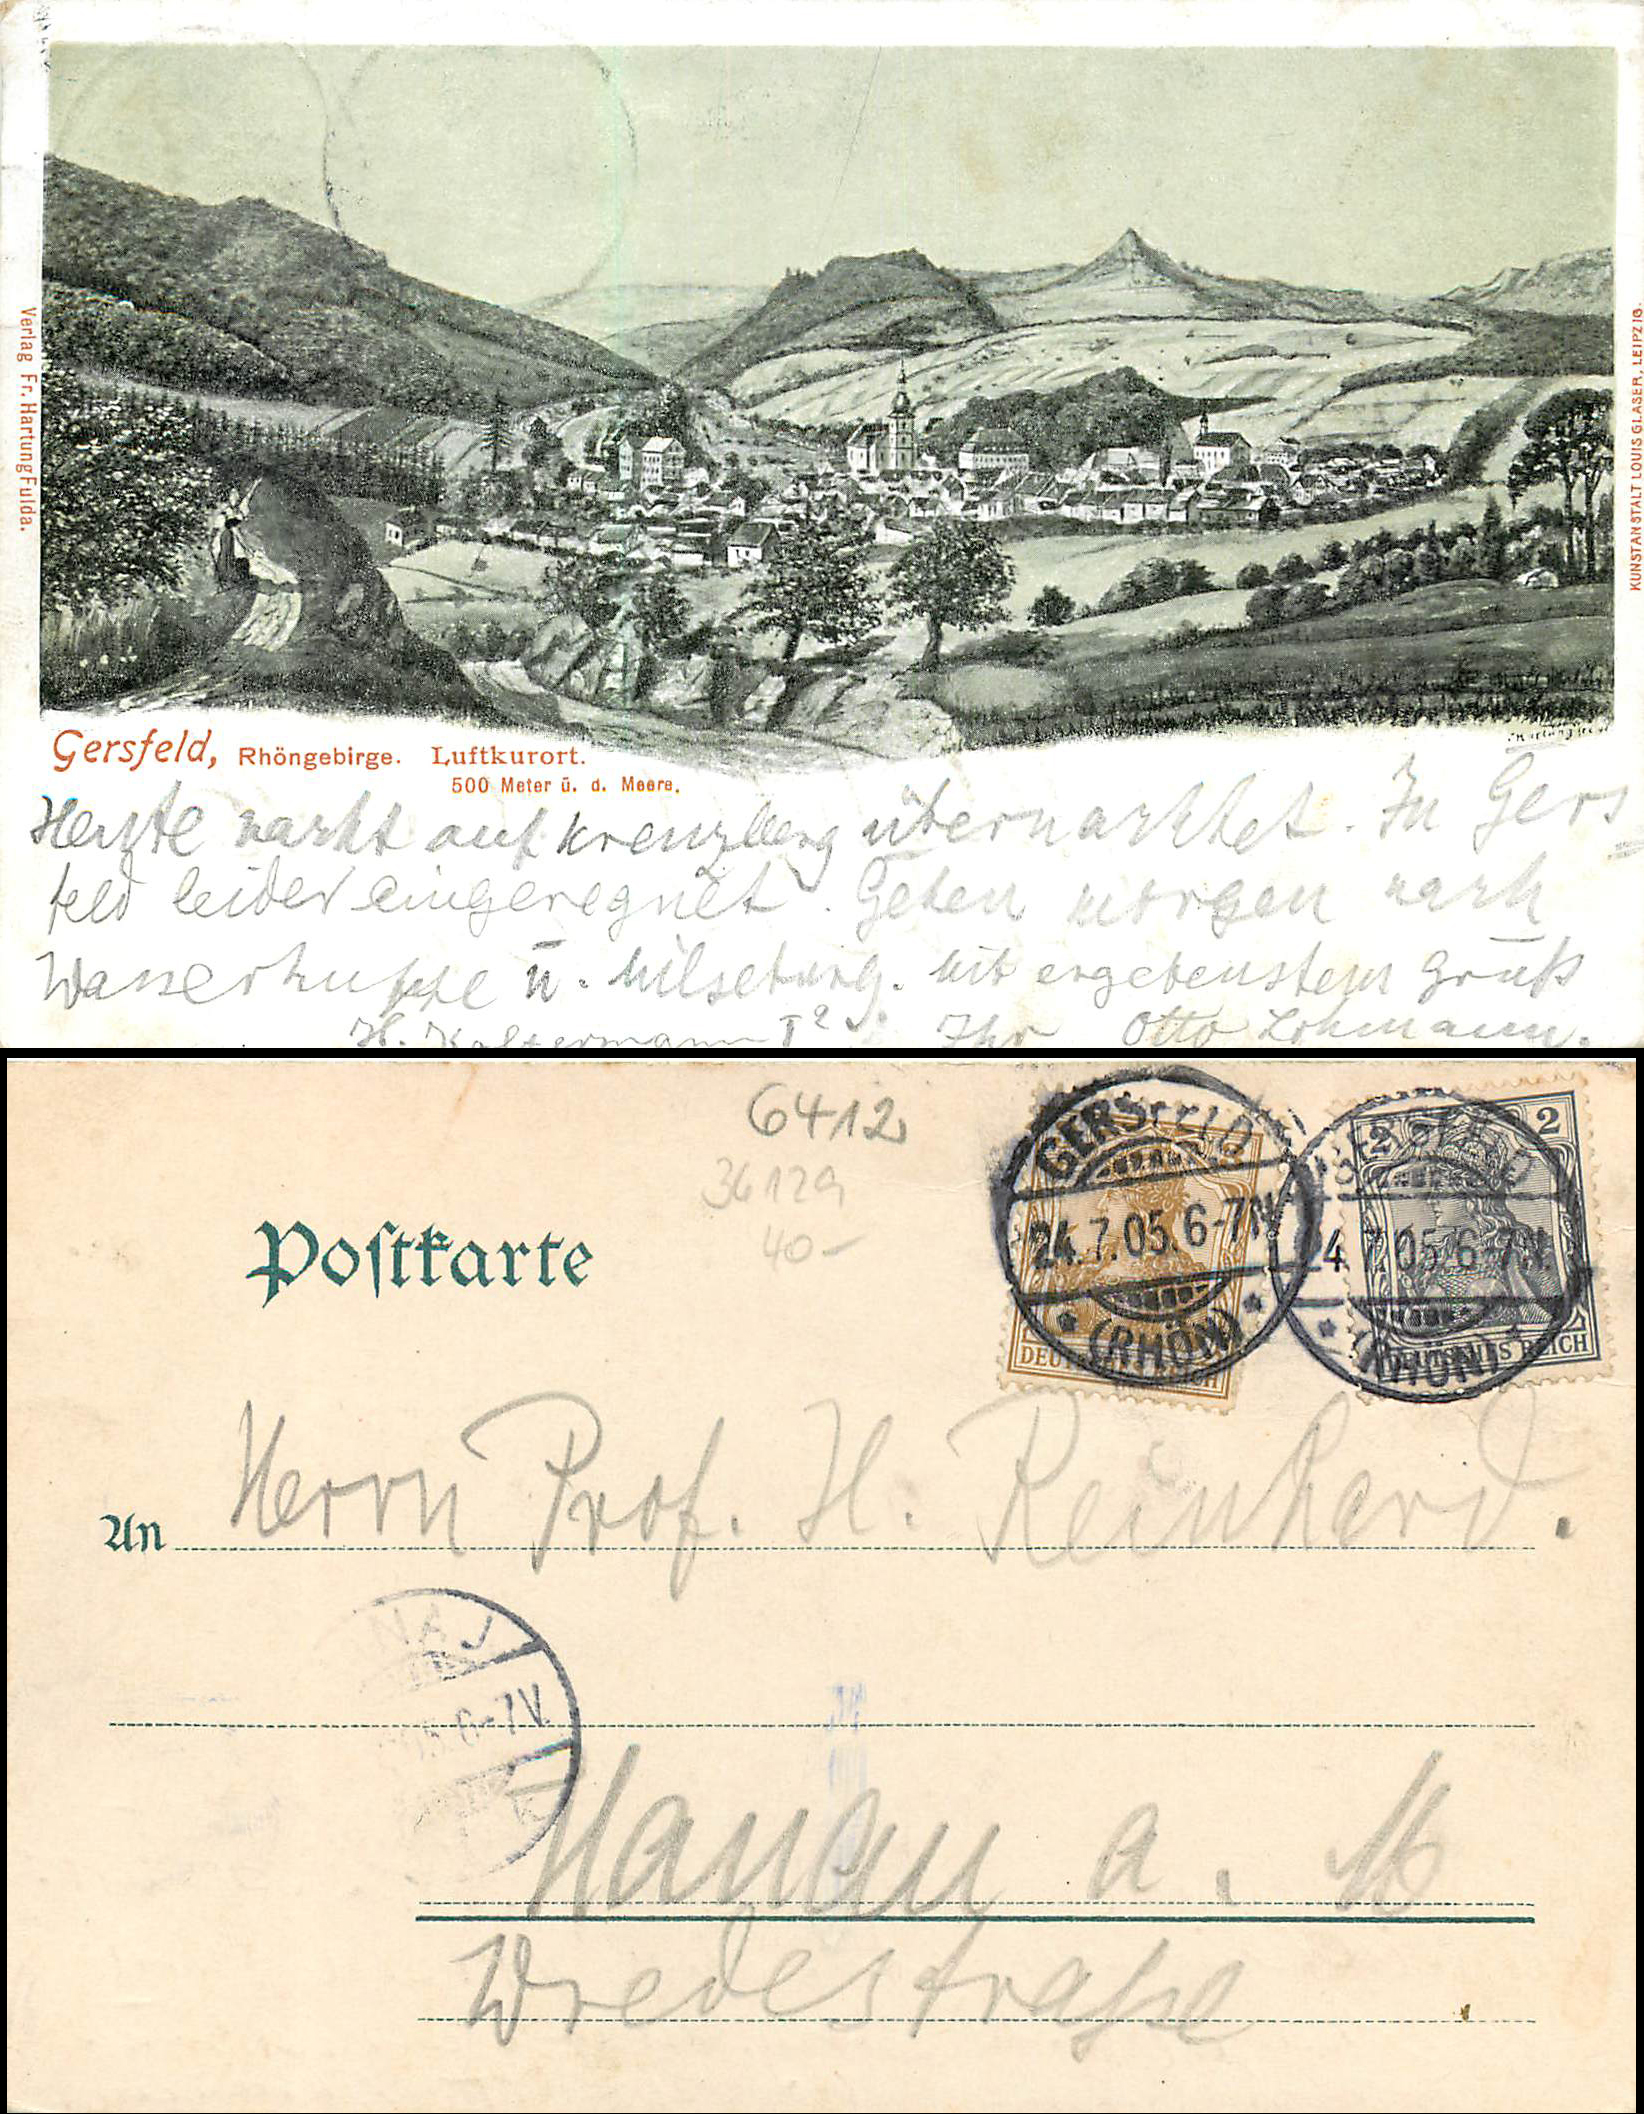 Verlag Fr. Hartung Fulda.
KUNSTANSTALT LOUIS GLASER, LEIPZIG.
Gersfeld, Rhöngebirge. Luftkurort.
500 Meter ü. d. Meere.
Heute nacht auf Kreuzberg übernachtet. In Gers
feld leider eingeregnet. Gehen morgen nach
Wasserkuppe u. Milseburg. Mit ergebenstem Gruß
H. Kaltermann I² Ihr Otto Lohmann.
6412
36129
40-
Postkarte
GERSFELD
24.7.05.6-7N.
(RHÖN)
DEUTSCHES REICH
GERSFELD
4.7.05.6-7N.
(RHÖN)
2 2
DEUTSCHES REICH
An Herrn Prof. H. Reinhard.
5.6-7V.
Hanau a. M
Wredestraße